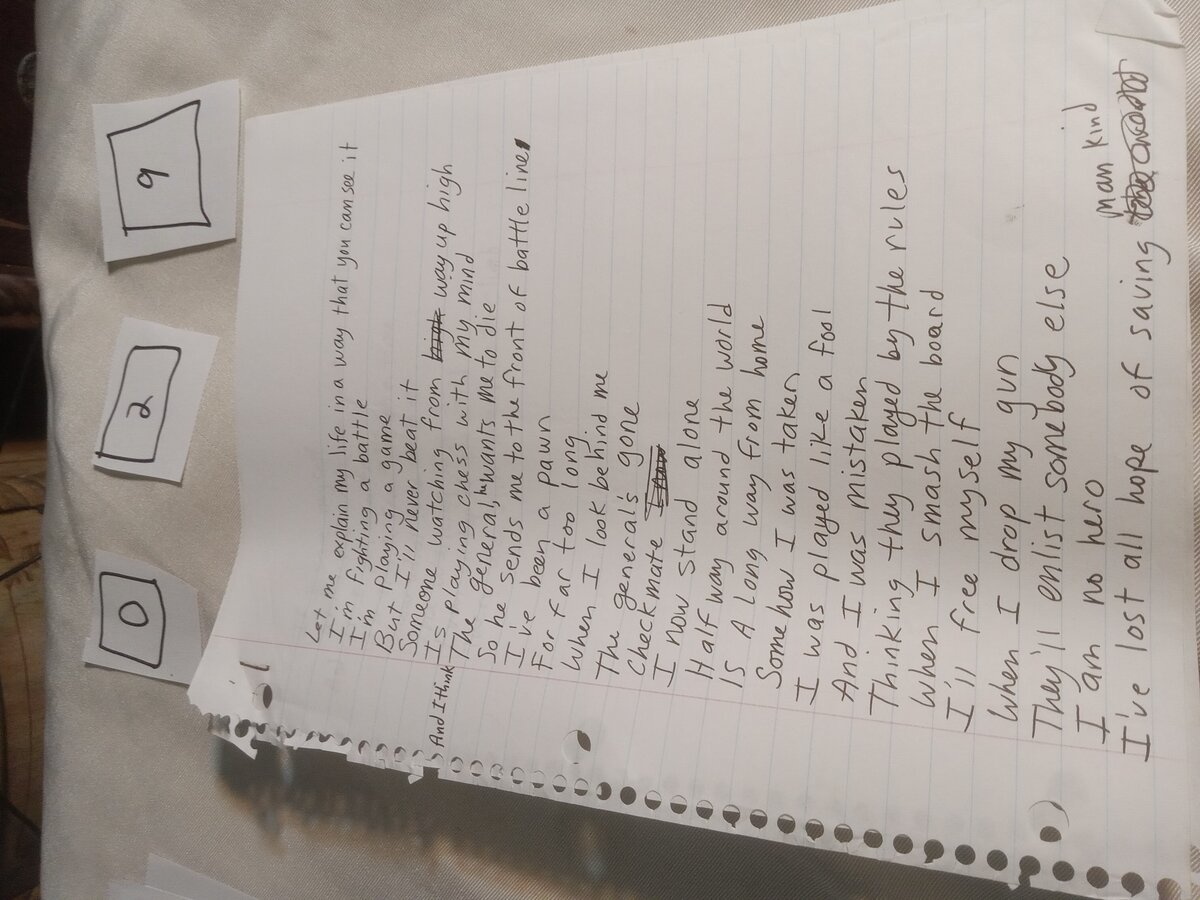 0 2 9
Let me explain my life in a way that you can see it
I'm fighting a battle
I'm playing a game
But I'll never beat it
Someone watching from way up high
Is playing chess with my mind
And I think The general, he wants me to die
So he sends me to the front of battle line
I've been a pawn
For far too long
When I look behind me
The general's gone
Checkmate
I now stand alone
Half way around the world
Is A long way from home
Somehow I was taken
I was played like a fool
And I was mistaken
Thinking they played by the rules
When I smash the board
I'll free myself
When I drop my gun
They'll enlist somebody else
I am no hero
I've lost all hope of saving man kind